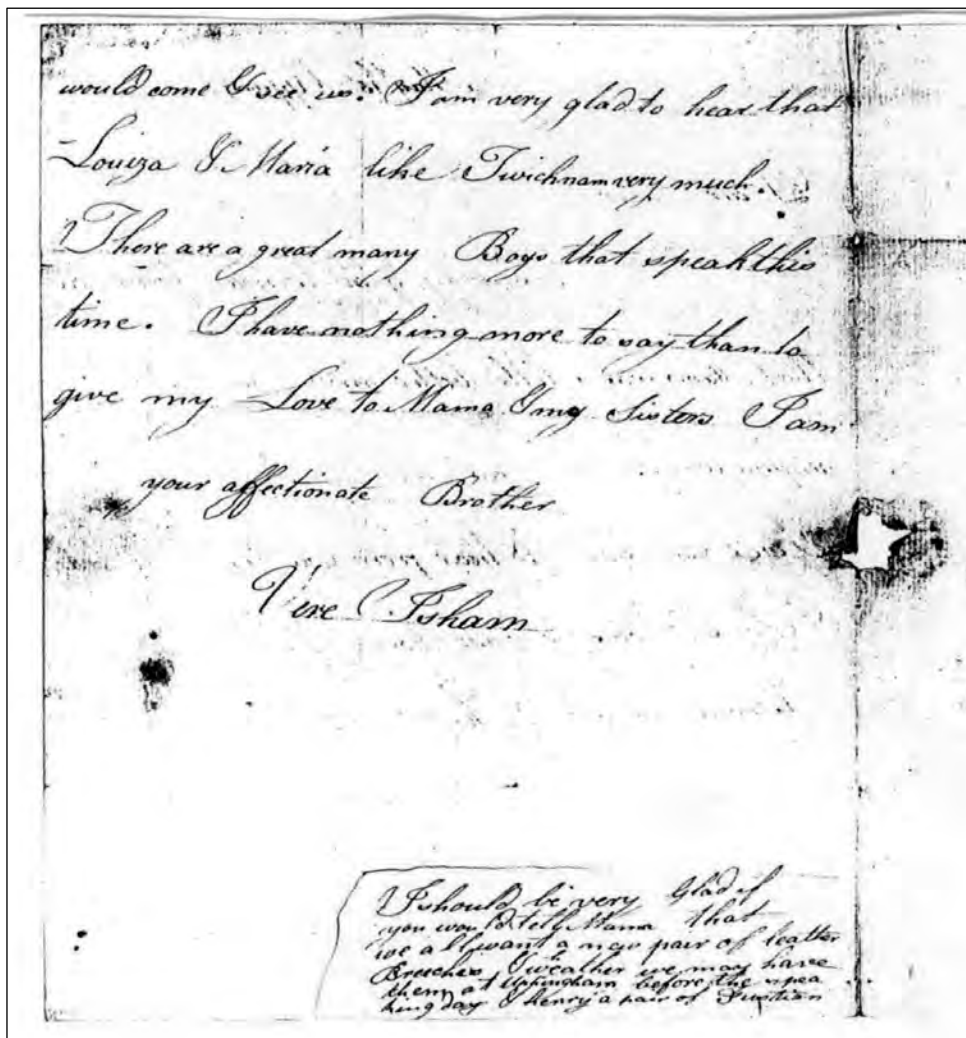 would come & see us. I am very glad to hear that
Louiza & Maria like Twichnam very much.
There are a great many Boys that speak this
time. I have nothing more to say than to
give my Love to Mama & my Sisters I am
your affectionate Brother
Vere Isham
I should be very Glad if
you would tell Mama that
we all want a new pair of leatter
Breeches & weather we may have
them at Uppingham before the spea
king day & henry a pair of Fustian